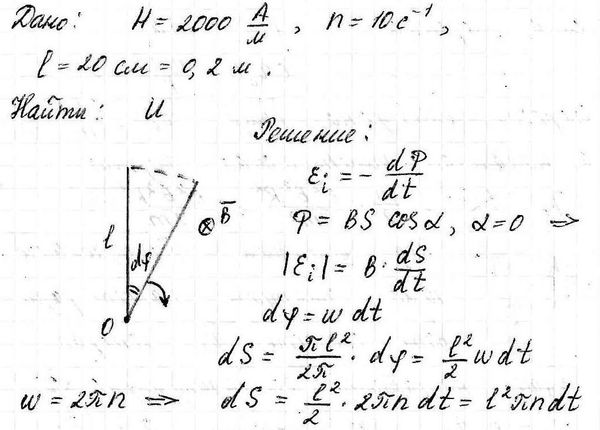 Дано: H = 2000 А/м, n = 10 с⁻¹,
l = 20 см = 0,2 м.
Найти: U
Решение:
εᵢ = - dФ/dt
Ф = BS cos α, α = 0 ⇒
|εᵢ| = B · dS/dt
dφ = w dt
dS = πl²/2π · dφ = l²/2 w dt
w = 2πn ⇒ dS = l²/2 · 2πn dt = l²πn dt
l
dφ
B̄
O